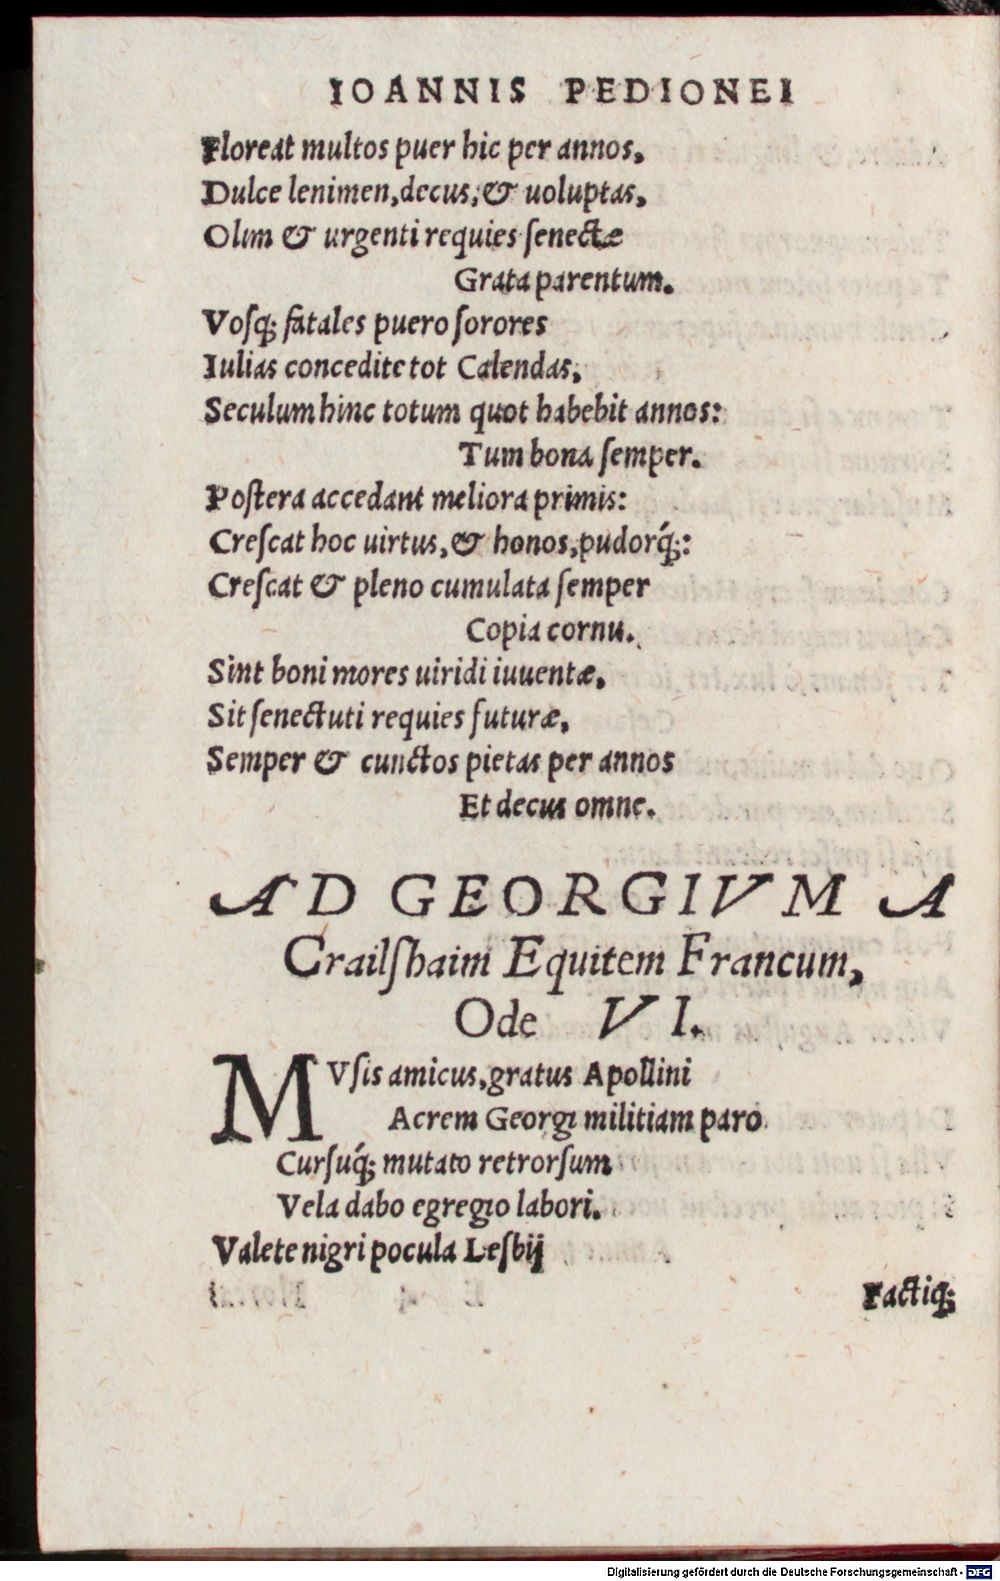 IOANNIS PEDIONEI
Floreat multos puer hic per annos,
Dulce lenimen, decus, & uoluptas,
Olim & urgenti requies ſenectæ
Grata parentum.
Voſq; fatales puero ſorores
Iulias concedite tot Calendas,
Seculum hinc totum quot habebit annos:
Tum bona ſemper.
Poſtera accedant meliora primis:
Creſcat hoc uirtus, & honos, pudorq́;:
Creſcat & pleno cumulata ſemper
Copia cornu.
Sint boni mores uiridi iuuentæ,
Sit ſenectuti requies futuræ,
Semper & cunctos pietas per annos
Et decus omne.
AD GEORGIVM A
Crailſhaim Equitem Francum,
Ode VI.
MVſis amicus, gratus Apollini
Acrem Georgi militiam paro
Curſuq́; mutato retrorſum
Vela dabo egregio labori.
Valete nigri pocula Lesbij
Factiq;
Digitalisierung gefördert durch die Deutsche Forschungsgemeinschaft - DFG